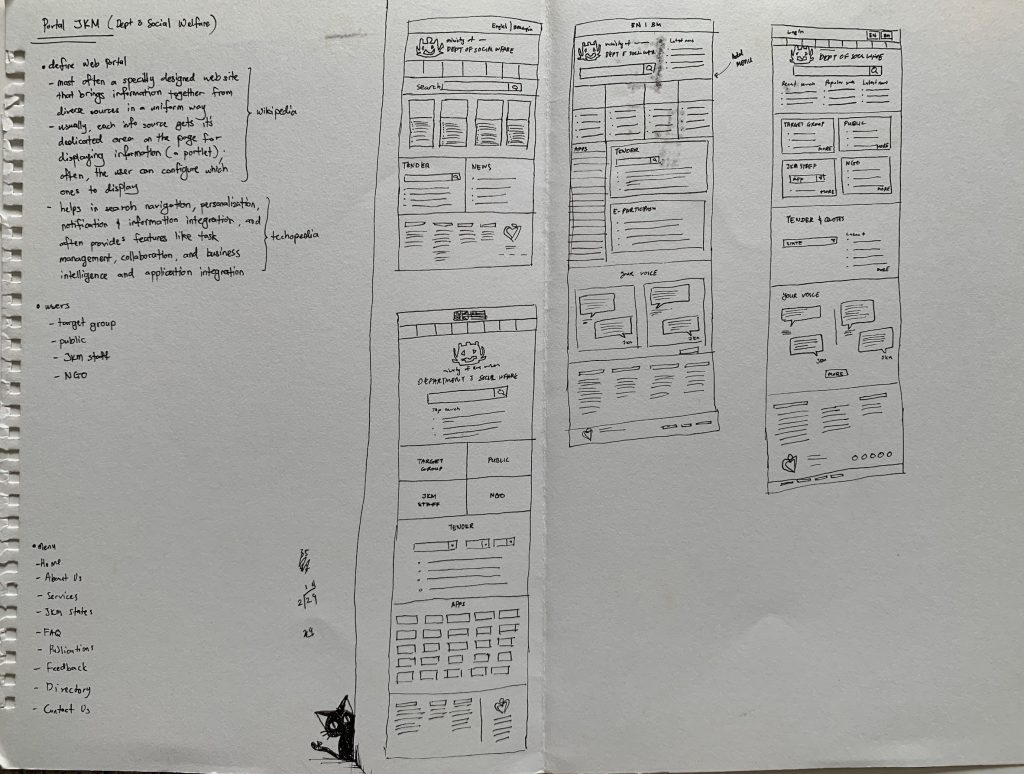 Portal JKM (Dept & Social Welfare)
• define web portal
- most often a specially designed website
that brings information together from
diverse sources in a uniform way
- usually, each info source gets it's
dedicated area on the page for
displaying information (a portlet).
often, the user can configure which
ones to display
wikipedia
- helps in search navigation, personalisation,
notification & information integration, and
often provides features like task
management, collaboration, and business
intelligence and application integration
techopedia
• users
- target group
- public
- JKM staff
- NGO
• menu
- Home
- About Us
- Services
- JKM States
- FAQ
- Publications
- Feedback
- Directory
- Contact Us
2 29
English
ministry of
DEPT OF SOCIAL WFARE
Search
TENDER
NEWS
DEPARTMENT & SOCIAL WFARE
Top search
TARGET
GROUP
PUBLIC
JKM
STAFF
NGO
TENDER
APPS
BN | BM
ministry of
Latest news
add
menus
APPS
TENDER
E-PARTICIPATION
YOUR VOICE
JKM
JKM
Log In
BN
BM
Recent search
Popular web
Latest news
TARGET GROUP
MORE
PUBLIC
MORE
JKM STAFF
MORE
NGO
MORE
TENDER & QUOTES
STATE
MORE
YOUR VOICE
JKM
JKM
MORE